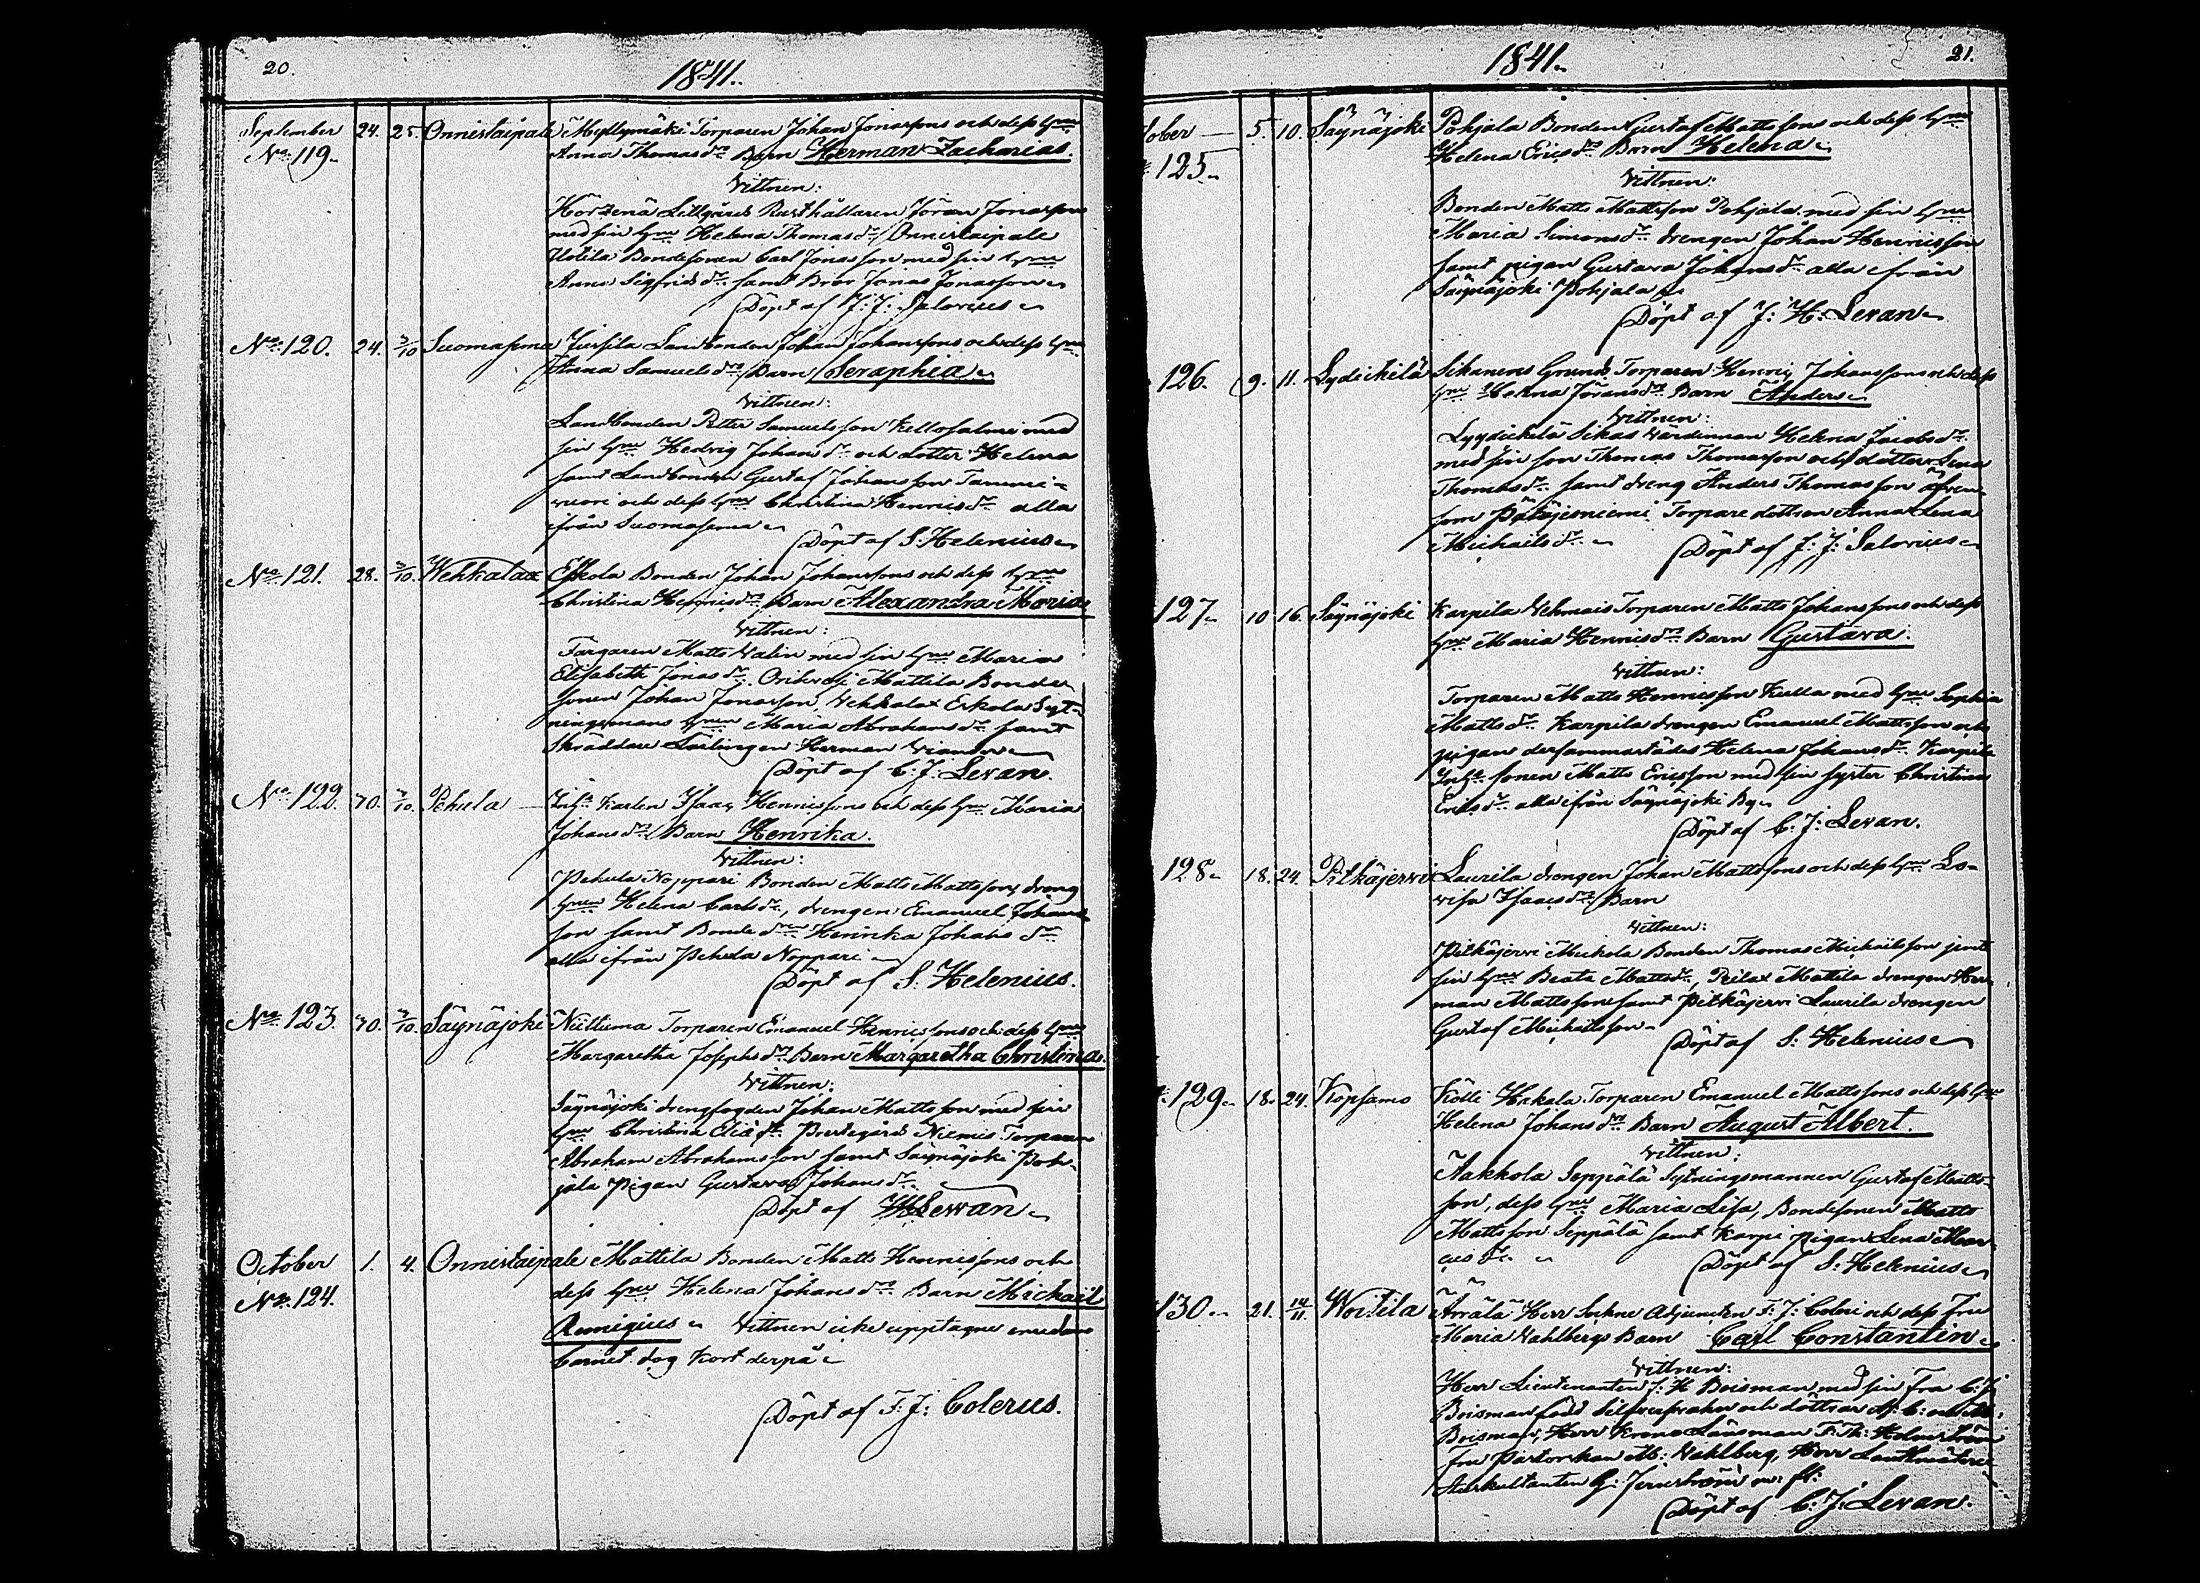 20.
1841.
September 24. 25. Onnistaipale Myllymäki Torparen Johan Jonassons och dess hru
No 119. Anna Thomasdr Barn Herman Zacharias.
Vittnen:
Lillgårds Rusthållaren Jöran Jonasson
med sin hru Helena Thomasdr Onnistaipale
Uotila Bondesonen Carl Jonasson med sin hru
Anna Sigfridsdr samt Bror Jonas Jonasson
Döpt af J: J: Salovius
No 120. 24. 3/10 Suomasema Landbonden Johan Johanssons och dess hru
Anna Samuelsdr Barn Seraphia
Vittnen:
Landbonden Petter Samuelsson Kellosalmi med
sin hru Hedvig Johansdr och dotter Helena
samt Landbonden Gustaf Johansson Tammi-
vuori och dess hru Christina Henricsdr alla
ifrån Suomasema
Döpt af S: Helenius
No 121. 28. 3/10. Wehkatax Eskola Bonden Johan Johanssons och dess hru
Christina Henricsdr Barn Alexandra Maria
Vittnen:
Färgaren Matts Valin med sin hru Maria
Elisabeth Jonasdr Mattila Bonde
sonen Johan Jonasson, Vehkatax Eskola Syt-
ningsmans hrun Maria Abrahamsdr samt
Skräddare Lärlingen Herman Wiander
Döpt af C: J: Levan.
No 122. 30. 3/10. Pehula Inhs Karlen Isaac Henricssons och dess hru Maria
Johansdr Barn Henrika.
Vittnen:
Pehula Noppari Bonden Matts Mattsson, dreng
hrun Helena Carlsdr, drengen Emanuel Johans
son samt Bonde dr Henrika Johansdr
alla ifrån Pehula Noppari
Döpt af S. Helenius.
No 123. 30. 3/10. Säynäjoki Niittuma Torparen Emanuel Henricssons och dess hru
Margaretha Josephsdr Barn Margaretha Christina.
Vittnen:
Säynäjoki drengfogden Johan Mattsson med sin
hru Christina Eliædr Prestegårds Niemis Torparen
Abraham Abrahamsson samt Säynäjoki Poh-
jala Pigan Gustava Johansdr
Döpt af Levan
October 1. 4. Onnistaipale Mattila Bonden Matts Henricssons och
No. 124. dess hru Helena Johansdr Barn Michaël
Remigius Vittnen icke upptagne emedan
barnet dog kort derpå
Döpt af F: J: Colerus.
1841. 21.
tober 5. 10. Säynäjoki Pohjala Bonden Gustaf Mattssons och dess hru
125. Helena Ericsdr Barn Helena
Vittnen:
Bonden Matts Mattsson Pohjala med sin hru
Maria Simonsdr drengen Johan Henricsson
samt pigan Gustava Johansdr alla ifrån
Säynäjoki Pohjala
Döpt af J: H: Levan
126. 9. 11. Lydickilä Sikanens Grunds Torparen Henric Johanssons och dess
hru Helena Jöransdr Barn Anders
Vittnen:
Lyydickilä Sikas Värdinnan Helena Jacobsdr
med sin son Thomas Thomasson och dotter Lena
Thomasdr samt dreng Anders Thomasson äfven-
som Pätäjeniemi Torpare dottren Anna Lena
Michailsdr
Döpt af J: J: Salovius
127. 10 16. Säynäjoki Karpila Torparen Matts Johanssons och dess
hru Maria Henricsdr Barn Gustava.
Vittnen:
Torparen Matts Henricsson Kulla med hru Sophia
Mattsdr Karpila drengen Emanuel Mattsson och
pigan dersammastädes Helena Johansdr Karpila
Inhs sonen Matts Ericsson med sin syster Christina
Ericsdr alla ifrån Säynäjoki By
Döpt af C: J: Levan.
128. 18. 24. Pitkäjervi Laurila drengen Johan Mattssons och dess hru Lo-
visa Isaacsdr Barn
Vittnen:
Pitkäjervi Mickola Bonden Thomas Michailsson jemte
sin hru Beata Mattsdr, Peilax Mattila drengen Her-
man Mattsson samt Pitkäjervi Laurila drengen
Gustaf Michailsson
Döpt af S: Helenius
129. 18. 24. Kopsamo Kölli Hakala Torparen Emanuel Mattssons och dess hru
Helena Johansdr Barn August Albert.
Vittnen:
Aakkola Seppälä Sytningsmannen Gustaf Matts-
son, dess hru Maria Lisa, Bondesonen Matts
Mattsson Seppälä samt Karpi pigan Lena Mar-
cusdr
Döpt af S: Helenius
130. 21. 14/11. Woitila Arrälä Herr Sockne Adjuncten F: J: Coleri och dess Fru
Maria Vahlbergs Barn Carl Constantin
Vittnen:
Herr Lieutenanten J: H Boisman med sin Fru C: J:
Boisman född och döttrar
Boisman, Herr Krono Länsman F: Th: Holmström
Fru Pastorskan M: Vahlberg, Herr Landtmäteri
Auskultanten G: m: fl:
Döpt af C: J: Levan.